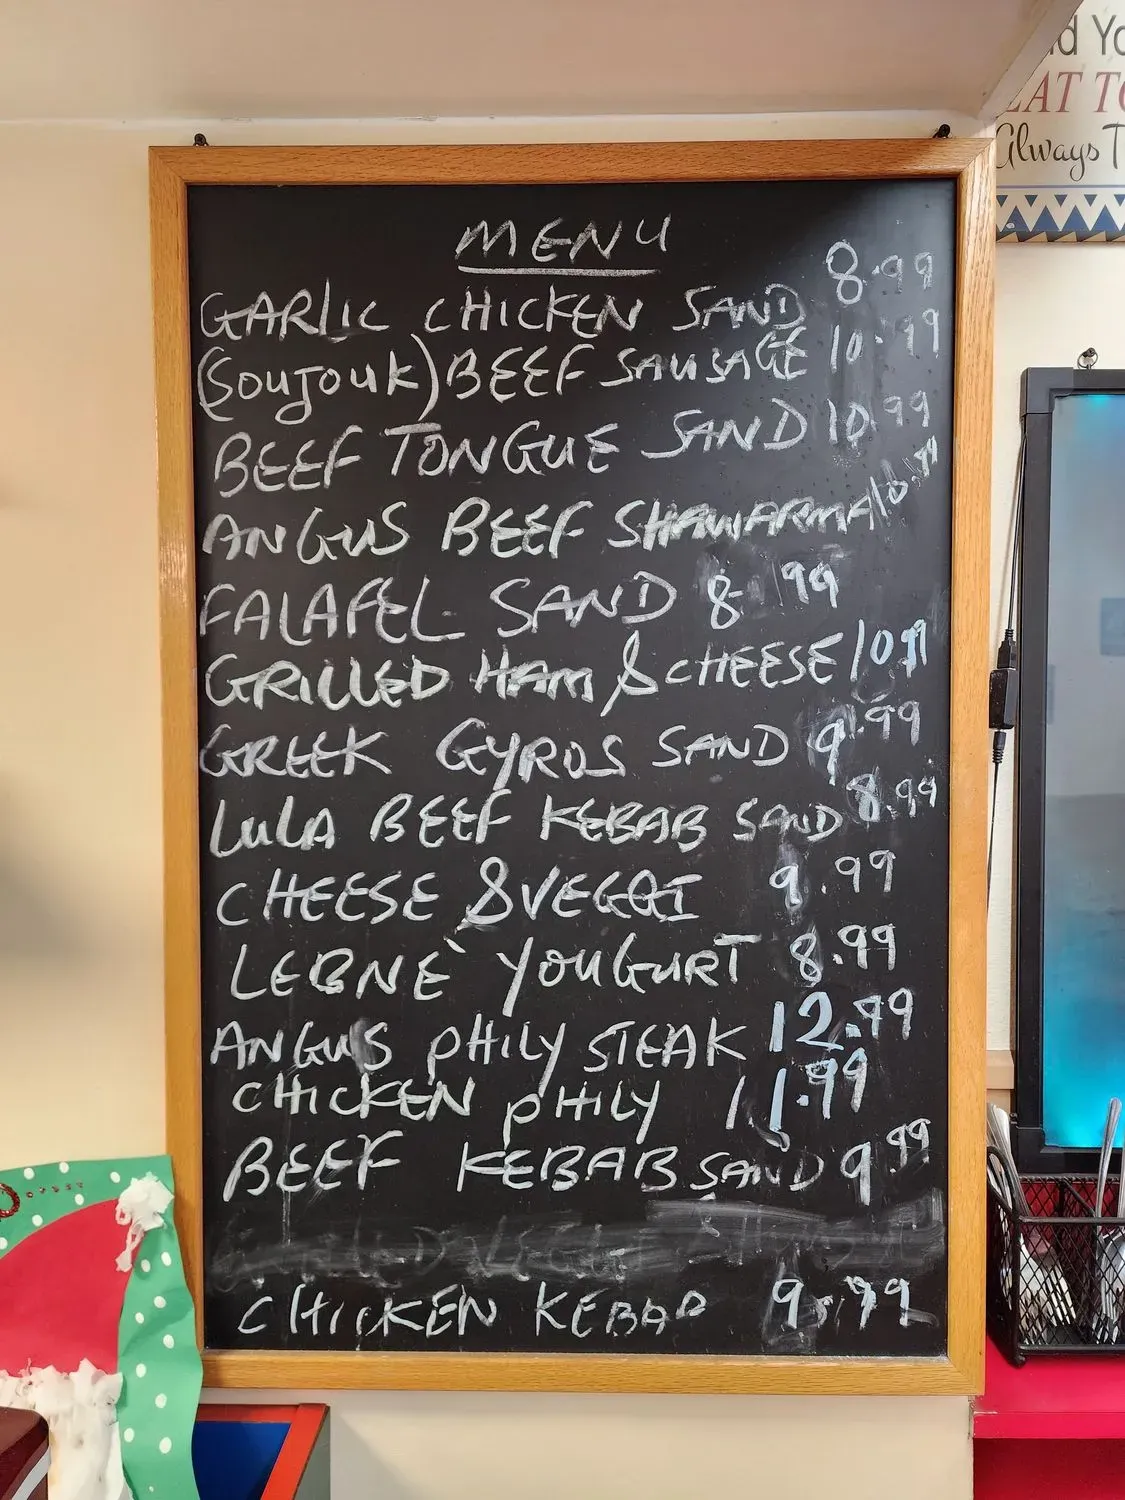 MENU
GARLIC CHICKEN SAND 8.99
(SOUJOUK) BEEF SAUSAGE 10.99
BEEF TONGUE SAND 10.99
ANGUS BEEF SHAWARMA 10.99
FALAFEL SAND 8.99
GRILLED HAM & CHEESE 10.99
GREEK GYROS SAND 9.99
LULA BEEF KEBAB SAND 8.99
CHEESE & VEGGI 9.99
LEBNE` YOUGURT 8.99
ANGUS PHILY STEAK 12.99
CHICKEN PHILY 11.99
BEEF KEBAB SAND 9.99
CHICKEN KEBAB 9.99
EAT
Always